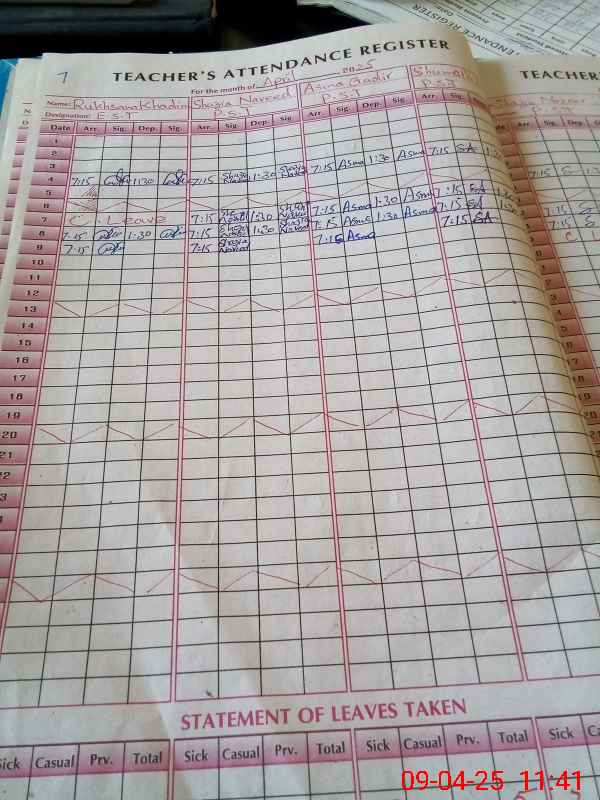 7 TEACHER'S ATTENDANCE REGISTER
For the month of April 2025
Name: Rukhsana Khadim Shazia Naveed Asma Qadir
Designation: E.S.T P.S.T P.S.T P.S.T
Date Arr. Sig. Dep. Sig. Arr. Sig. Dep. Sig. Arr. Sig. Dep. Sig. Arr. Sig.
1
2
3
4 7:15 1:30 7:15 Shazia Naveed 1:30 Shazia Naveed 7:15 Asma 1:30 Asma 7:15 SA 1:30
5
6
7 C. Leave 7:15 1:30 Shazia Naveed 7:15 Asma 1:30 Asma 7:15 SA
8 7:15 1:30 7:15 Shazia Naveed 1:30 Shazia Naveed 7:15 Asma 1:30 Asma 7:15 SA
9 7:15 7:15 Shazia Naveed 7:15 Asma 7:15 SA
10
11
12
13
14
15
16
17
18
19
20
21
22
STATEMENT OF LEAVES TAKEN
Sick Casual Prv. Total Sick Casual Prv. Total Sick Casual Prv. Total Sick Casual
TEACHER'S
ATTENDANCE REGISTER
09-04-25 11:41